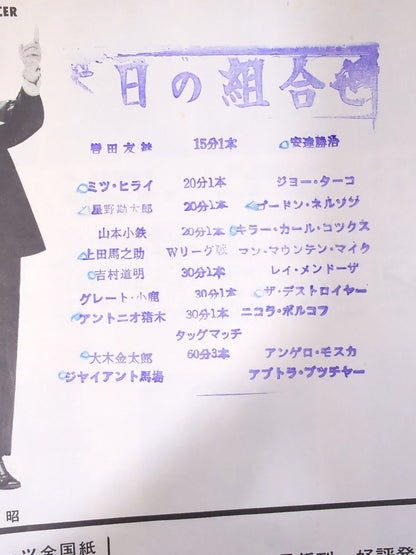 CER
日の組合せ
轡田友継 15分1本 安達勝治
ミツ・ヒライ 20分1本 ジョー・ターコ
星野勘太郎 20分1本 ゴードン・ネルソン
山本小鉄 20分1本 キラー・カール・コックス
上田馬之助 Wリーグ戦 マン・マウンテン・マイク
吉村道明 30分1本 レイ・メンドーザ
グレート・小鹿 30分1本 ザ・デストロイヤー
アントニオ猪木 30分1本 ニコラ・ボルコフ
タッグマッチ
大木金太郎 60分3本 アンゲロ・モスカ
ジャイアント馬場 アブトラ・ブッチャー
昭
ツ全国紙
好評発